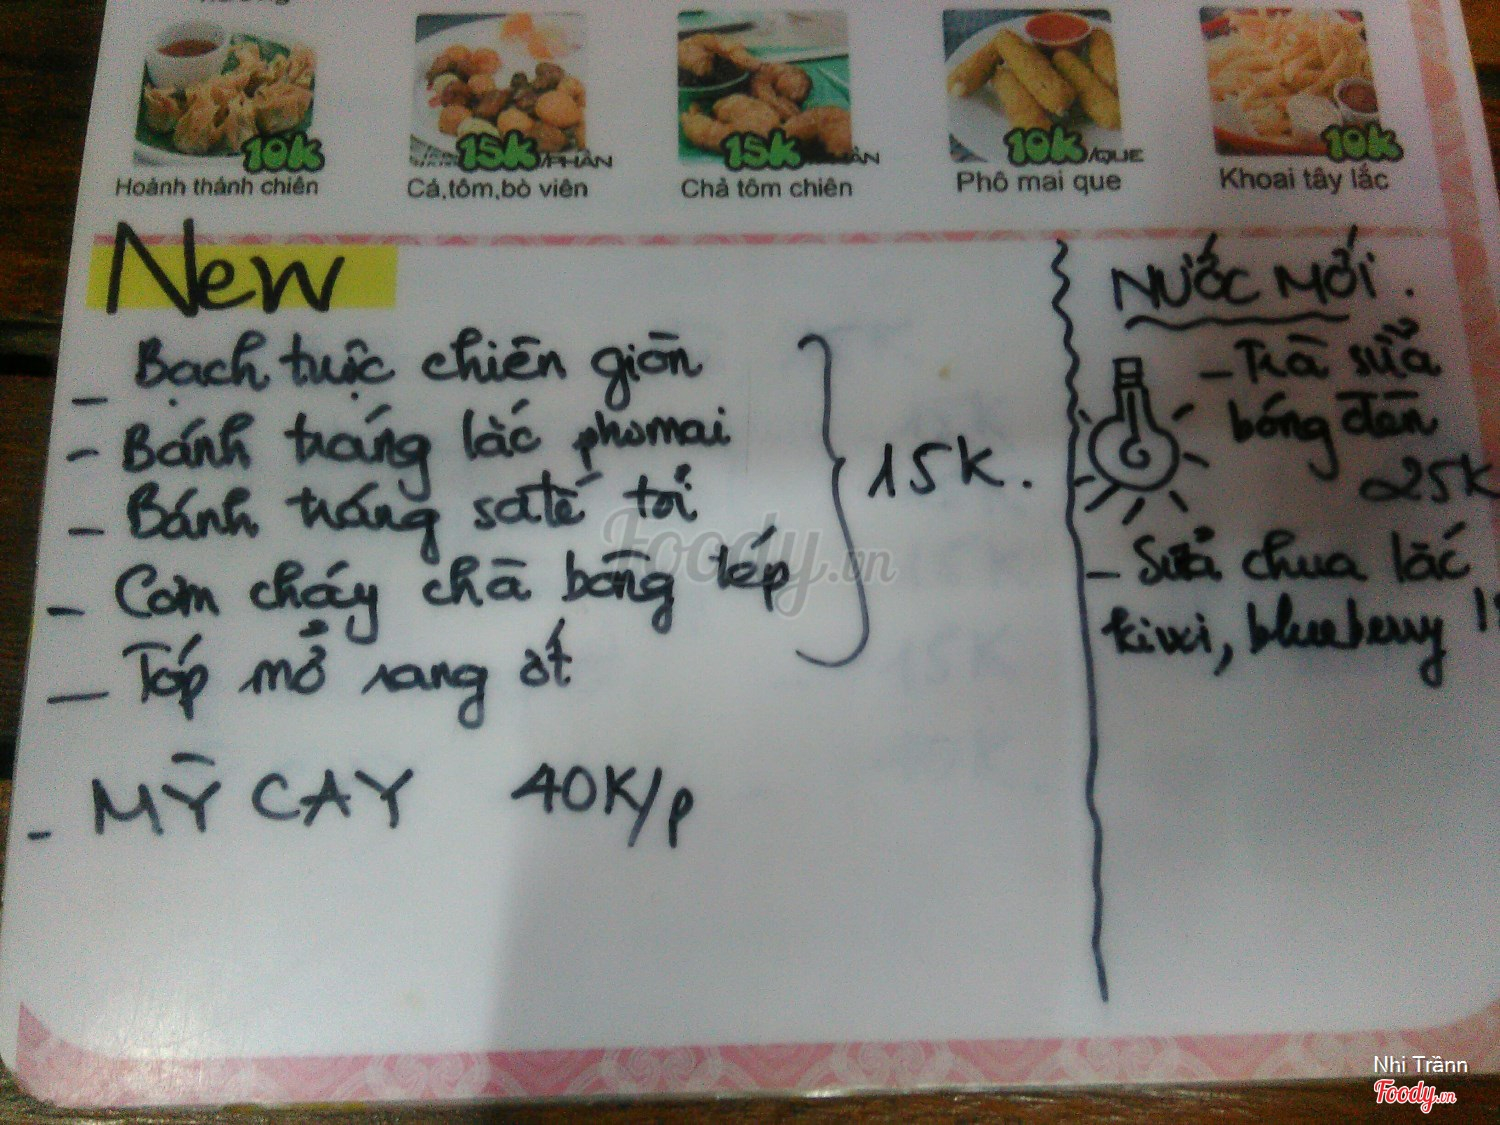 10k
15k/PHẦN
15k
10k/QUE
10k
Hoành thánh chiên
Cá,tôm,bò viên
Chả tôm chiên
Phô mai que
Khoai tây lắc
New
- Bạch tuộc chiên giòn
- Bánh tráng lắc phomai
- Bánh tráng saté tỏi
- Cơm cháy chà bông tép
- Tóp mỡ rang ớt
15K.
- MỲ CAY 40K/p
NƯỚC MỚI.
- Trà sữa
bóng đèn
25K
- Sữa chua lắc
kiwi, blueberry
Foody.vn
Nhi Trần­n
Foody.vn